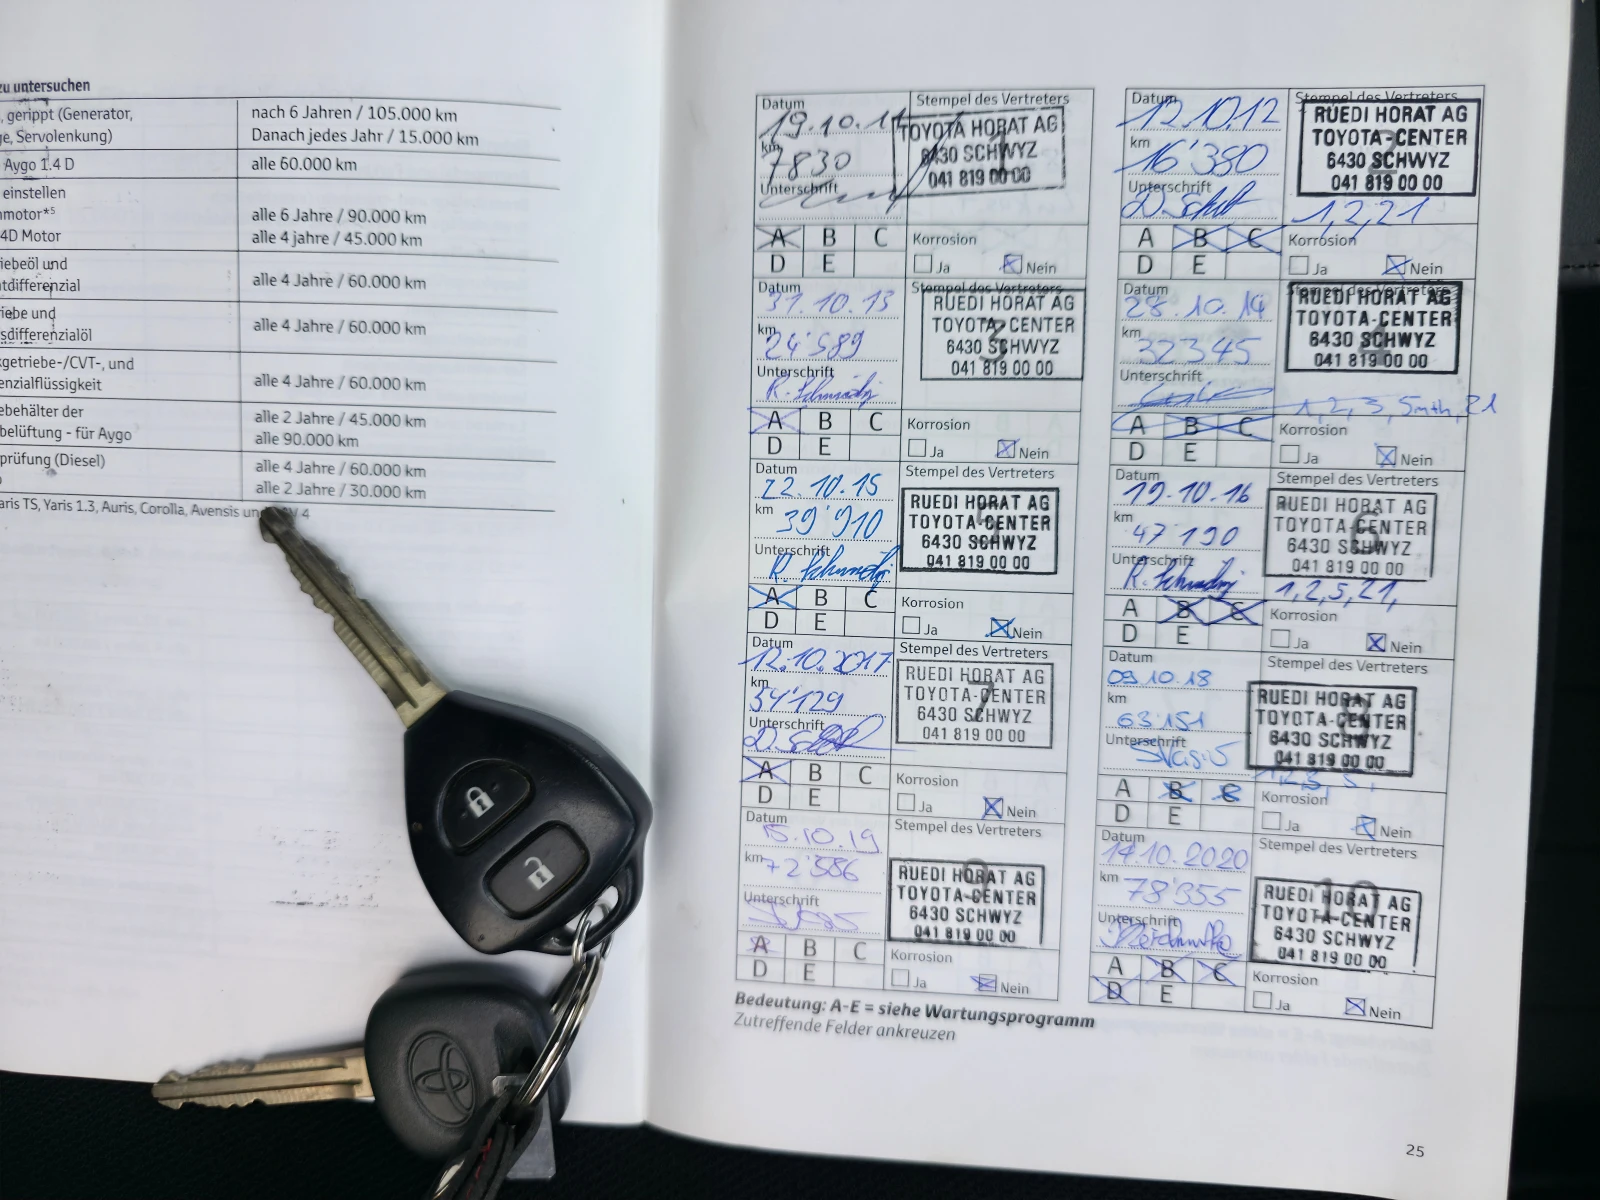 zu untersuchen
, gerippt (Generator,
ge, Servolenkung)
nach 6 Jahren / 105.000 km
Danach jedes Jahr / 15.000 km
Aygo 1.4 D
alle 60.000 km
einstellen
nmotor*5
4D Motor
alle 6 Jahre / 90.000 km
alle 4 jahre / 45.000 km
iebeöl und
ntdifferenzial
alle 4 Jahre / 60.000 km
iebe und
sdifferenzialöl
alle 4 Jahre / 60.000 km
kgetriebe-/CVT-, und
enzialflüssigkeit
alle 4 Jahre / 60.000 km
ebehälter der
belüftung - für Aygo
alle 2 Jahre / 45.000 km
alle 90.000 km
prüfung (Diesel)
alle 4 Jahre / 60.000 km
alle 2 Jahre / 30.000 km
aris TS, Yaris 1.3, Auris, Corolla, Avensis und 4
Datum
19.10.11
km
7830
Unterschrift
Stempel des Vertreters
TOYOTA HORAT AG
6430 SCHWYZ
041 819 00 00
A B C
D E
Korrosion
Ja Nein
Datum
12.10.12
km
16'380
Unterschrift
Stempel des Vertreters
RUEDI HORAT AG
TOYOTA-CENTER
6430 SCHWYZ
041 819 00 00
2
1,2,21
A B C
D E
Korrosion
Ja Nein
Datum
31.10.13
km
24'589
Unterschrift
Stempel des Vertreters
RUEDI HORAT AG
TOYOTA-CENTER
6430 SCHWYZ
041 819 00 00
3
A B C
D E
Korrosion
Ja Nein
Datum
28.10.14
km
32345
Unterschrift
Stempel des Vertreters
RUEDI HORAT AG
TOYOTA-CENTER
6430 SCHWYZ
041 819 00 00
4
1,2,3,5
21
A B C
D E
Korrosion
Ja Nein
Datum
22.10.15
km
39'910
Unterschrift
Stempel des Vertreters
RUEDI HORAT AG
TOYOTA-CENTER
6430 SCHWYZ
041 819 00 00
A B C
D E
Korrosion
Ja Nein
Datum
19.10.16
km
47'190
Unterschrift
Stempel des Vertreters
RUEDI HORAT AG
TOYOTA-CENTER
6430 SCHWYZ
041 819 00 00
6
1,2,5,21,
A B C
D E
Korrosion
Ja Nein
Datum
12.10.2017
km
54'129
Unterschrift
Stempel des Vertreters
RUEDI HORAT AG
TOYOTA-CENTER
6430 SCHWYZ
041 819 00 00
7
A B C
D E
Korrosion
Ja Nein
Datum
09.10.18
km
63'151
Unterschrift
Stempel des Vertreters
RUEDI HORAT AG
TOYOTA-CENTER
6430 SCHWYZ
041 819 00 00
A B C
D E
Korrosion
Ja Nein
Datum
15.10.19
km
72'586
Unterschrift
Stempel des Vertreters
RUEDI HORAT AG
TOYOTA-CENTER
6430 SCHWYZ
041 819 00 00
9
A B C
D E
Korrosion
Ja Nein
Datum
14.10.2020
km
78'355
Unterschrift
Stempel des Vertreters
RUEDI HORAT AG
TOYOTA-CENTER
6430 SCHWYZ
041 819 00 00
10
A B C
D E
Korrosion
Ja Nein
Bedeutung: A-E = siehe Wartungsprogramm
Zutreffende Felder ankreuzen
25